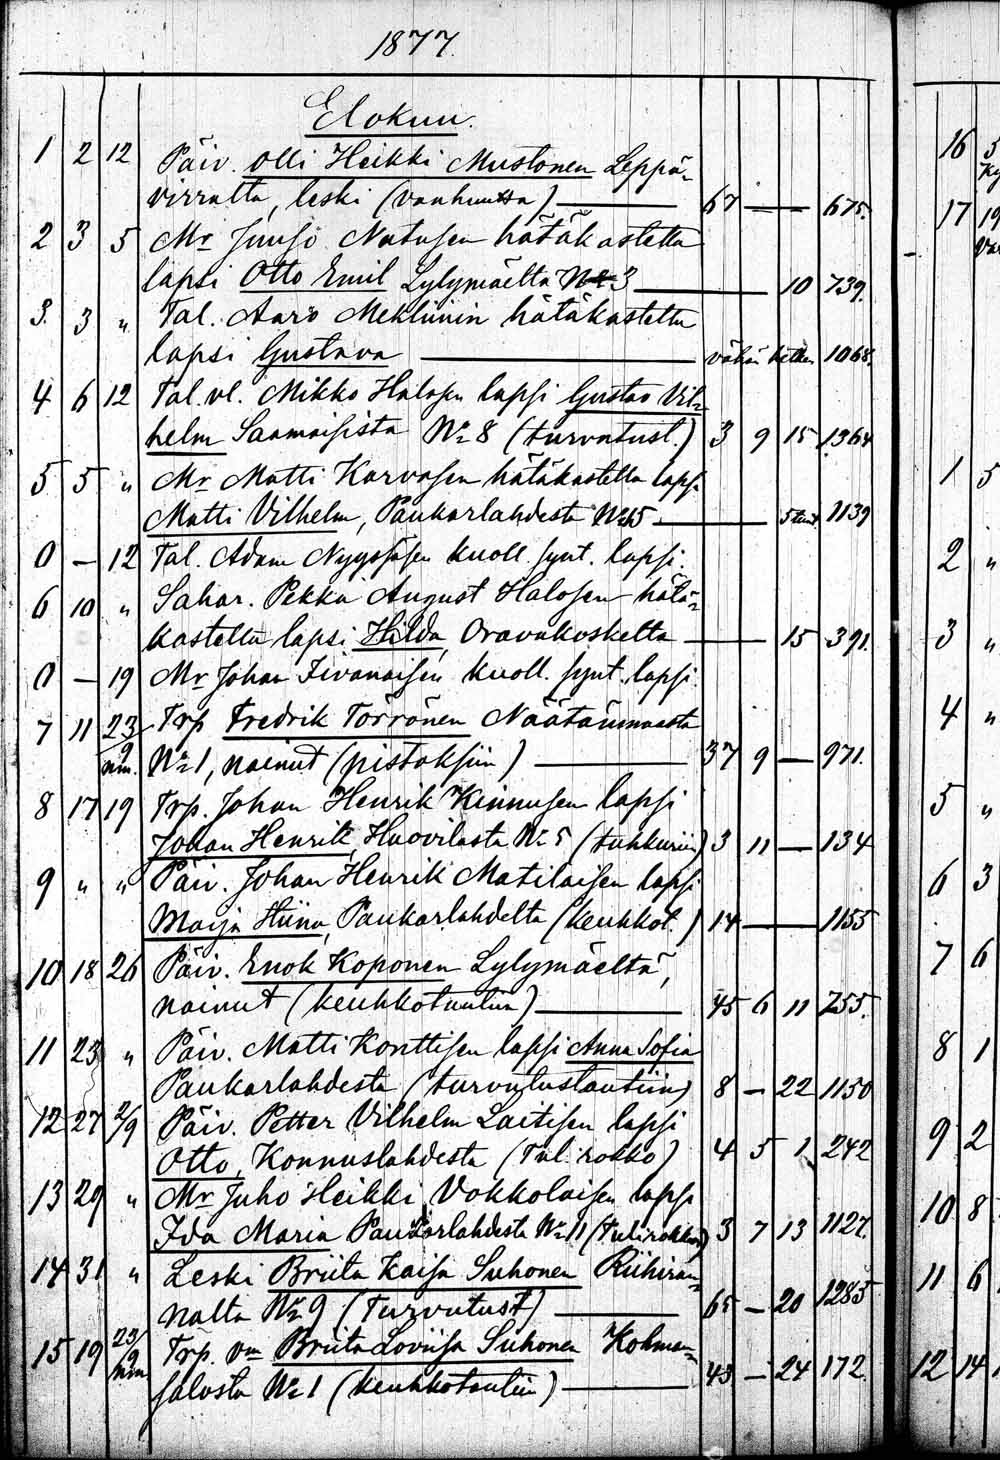 1877.
Elokuu.
1 2 12 Päiv. Olli Heikki Mustonen Leppä-
virralta, leski (vanhuutta) 67 — — 675.
2 3 5 Mr Juuso Natusen hätäkastettu
lapsi Otto Emil Lylymäeltä № 3 — 10 739.
3. 3 „ Tal. Aaro Mekliinin hätäkastettu
lapsi Gustava — vähän hetken 1068.
4 6 12 Tal. vl. Mikko Halosen lapsi Gustav Vil-
helm Saamaisista № 8 (turvatust.) 3 9 15 1364
5 5 „ Mr Matti Karvosen hätäkastettu lapsi
Matti Vilhelm, Paukarlahdesta № 15 — 5 tunt 1139
0 — 12 Tal. Adam Nyyssösen kuoll. synt. lapsi.
6 10 „ Sahar. Pekka August Halosen hätä-
kastettu lapsi Hilda, Oravakoskelta — 15 391.
0 — 19 Mr Johan Iivanaisen kuoll. synt. lapsi.
7 11 23/9 Trp Fredrik Törrönen Näätänmaasta
nm. № 1, nainut (pistoksiin) — 37 9 — 971.
8 17 19 Trp. Johan Henrik Kinnusen lapsi
Johan Henrik, Huovilasta № 5 (tuhkuriin) 3 11 — 134
9 „ „ Päiv. Johan Henrik Matilaisen lapsi
Maija Hiina, Paukarlahdelta (keuhkot.) 14 — 1155
10 18 26 Päiv. Enok Koponen Lylymäeltä,
nainut (keuhkotautiin) — 45 6 11 755.
11 23 „ Päiv. Matti Konttisen lapsi Anna Sofia
Paukarlahdesta (turvutustautiin) 8 — 22 1150
12 27 2/9 Päiv. Petter Vilhelm Laitisen lapsi
Otto, Konnuslahdesta (Tul. rokko) 4 5 1 242
13 29 „ Mr Juho Heikki Vokkolaisen lapsi
Ida Maria Paukarlahdesta № 11 (tulirokkoon) 3 7 13 1127.
14 31 „ Leski Briita Kaisa Suhonen Riihiran-
nalta № 9 (Turvutust) — 65 — 20 1285
15 19 23/9 Trp. vm Briita Loviisa Suhonen Kohma-
nm salosta № 1 (keuhkotautiin) — 43 — 24 172.
16 5
17 19
1 5
2 „
3 „
4 „
5 „
6 3
7 6
8 1
9 2
10 8
11 6
12 14